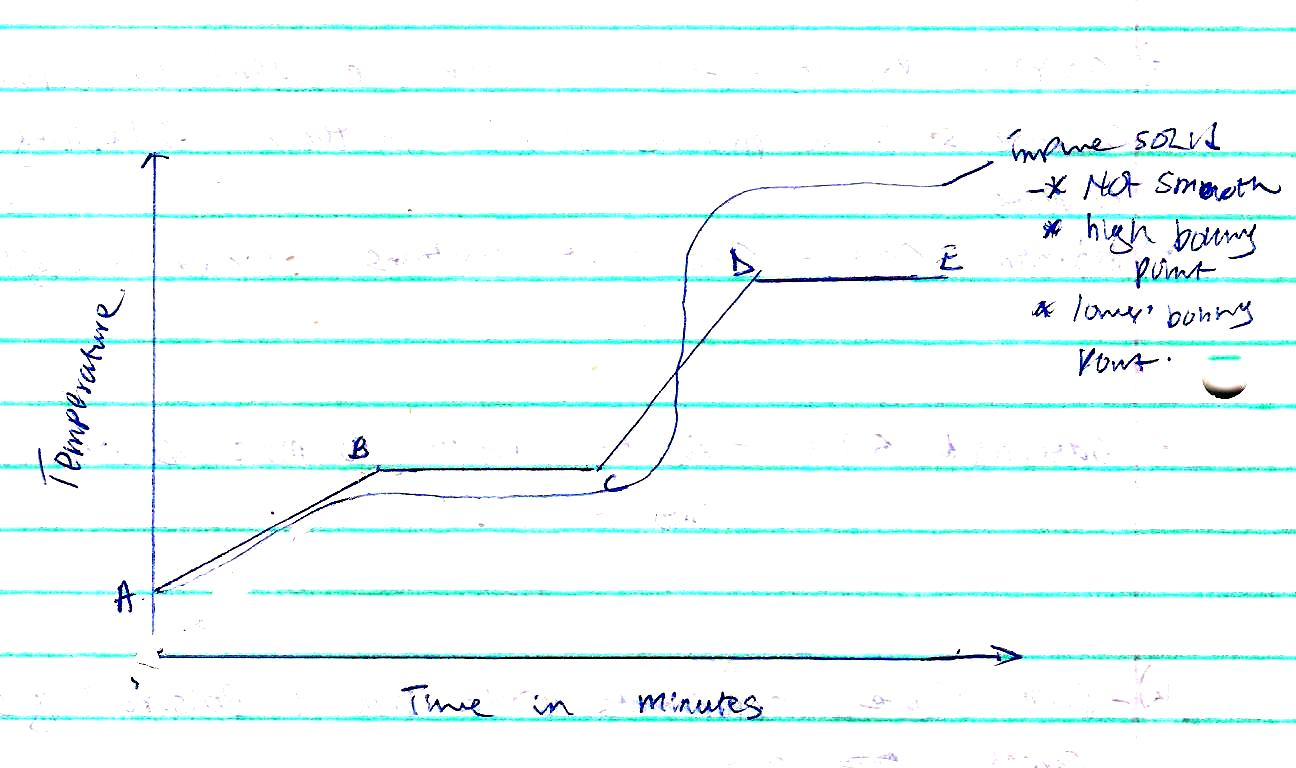 Impure solid
-* Not smooth
* high boiling
point
D E
* lower boiling
point.
Temperature
B
C
A
Time in minutes